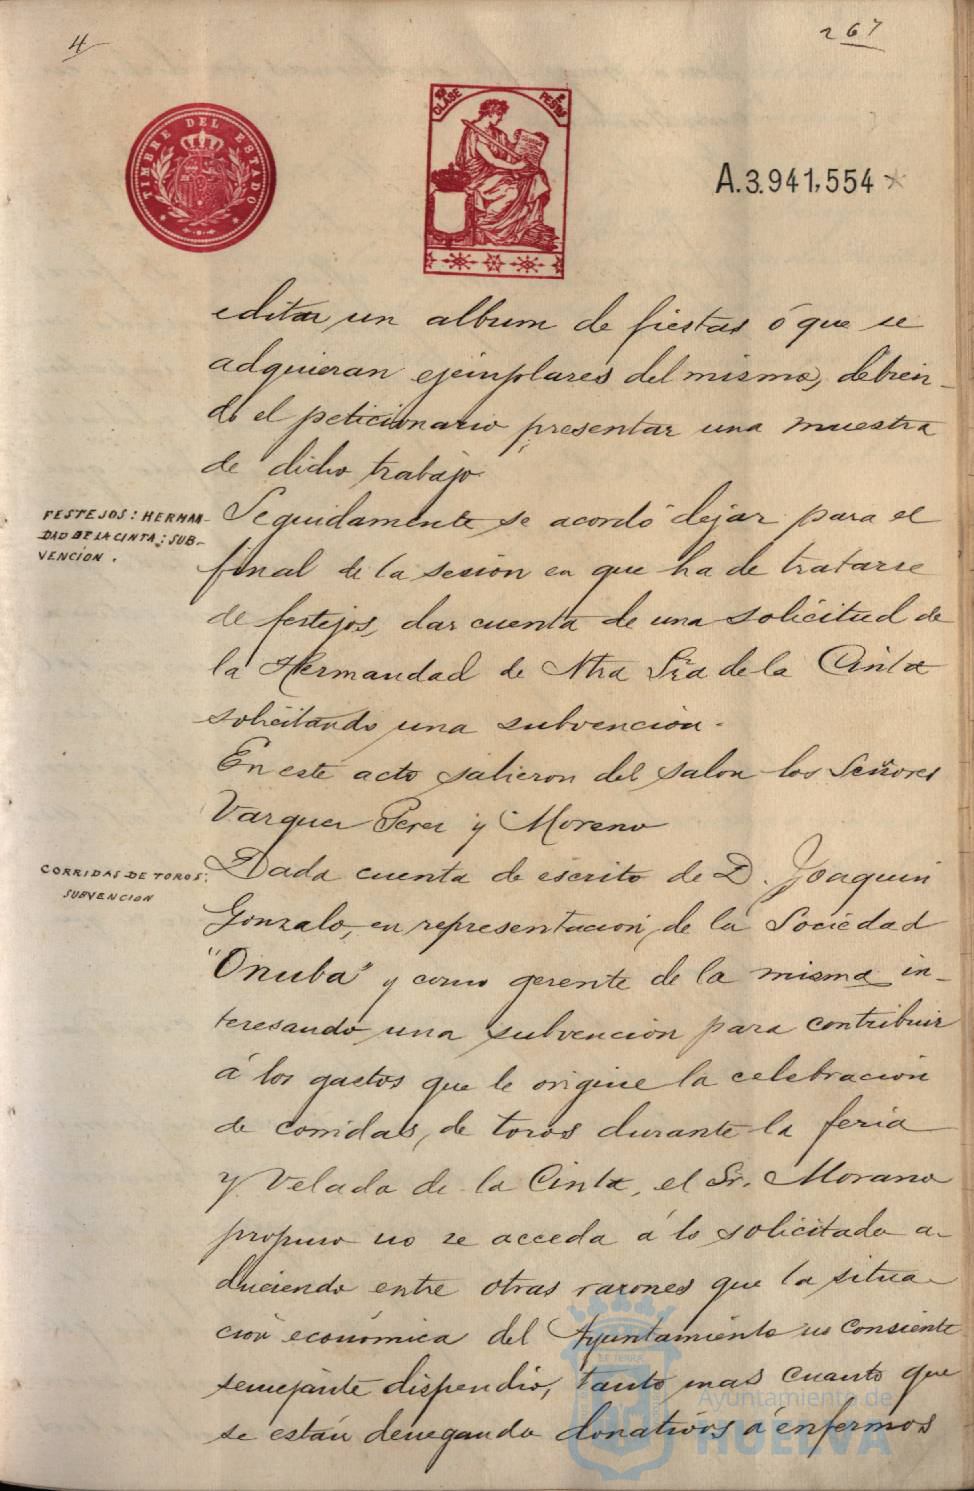 4
267
TIMBRE DEL ESTADO
CLASE
PESETAS
A.3.941,554
editar un album de fiestas ó que se
adquieran ejemplares del mismo, debien-
do el peticionario presentar una muestra
de dicho trabajo
FESTEJOS: HERMAN-
DAD DE LA CINTA: SUB-
VENCION.
Seguidamente se acordó dejar para el
final de la sesion en que ha de tratarse
de festejos, dar cuenta de una solicitud de
la Hermandad de Ntra Sra de la Cinta
solicitando una subvencion.
En este acto salieron del salon los Señores
Vazquez Perez y Moreno
CORRIDAS DE TOROS.
SUBVENCION
Dada cuenta de escrito de D. Joaquin
Gonzalo, en representacion de la Sociedad
"Onuba" y como gerente de la misma in-
teresando una subvencion para contribuir
á los gastos que le origine la celebracion
de corridas de toros durante la feria
y Velada de la Cinta, el Sr. Morano
propuso no se acceda á lo solicitado a-
duciendo entre otras razones que la situa-
ción económica del Ayuntamiento no consiente
semejante dispendio, tanto mas cuanto que
se están denegando donativos á enfermos
Ayuntamiento de
HUELVA